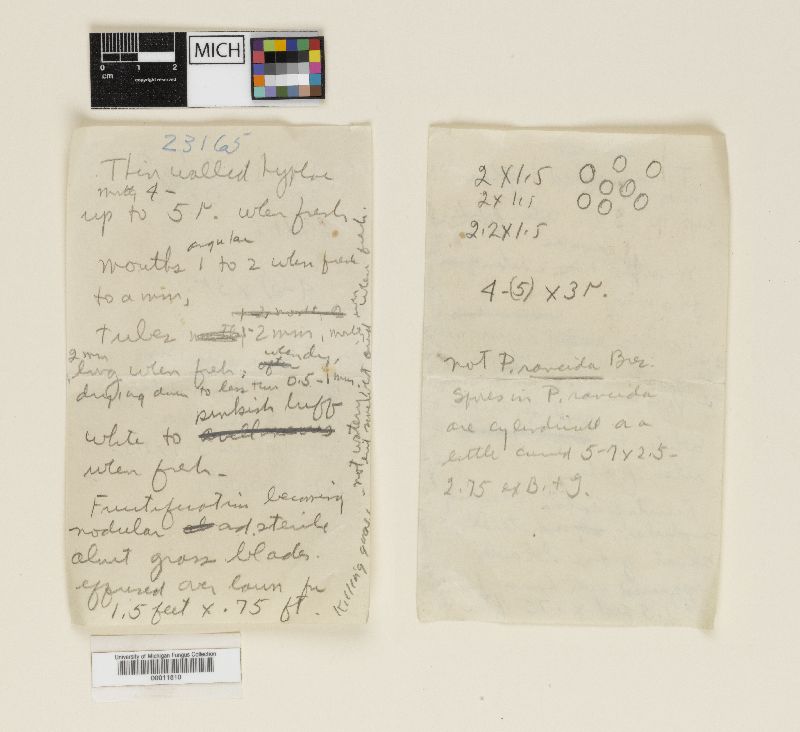 0 1 2
cm
copyright reserved
MICH
23165
Thin walled hyphae
mostly 4 -
up to 5 r. when fresh.
angular
mouths 1 to 2 when fresh
to a mm,
tubes 1-2 mm, mostly
2 mm
long when fresh; when dry,
drying down to less than 0.5-1 mm.
pinkish buff
white to avellaneous
when fresh -
Fructification becoming
nodular and sterile
about grass blades.
effused over lawn for
1.5 feet x .75 ft.
Killing grass, - not watery
when fresh.
University of Michigan Fungus Collection
00011610
2 X 1.5
2 x 1.5
2.2 X 1.5
4-(5) x 3 r.
not P. rancida Bres.
Spores in P. rancida
are cylindrical or a
little curved 5-7 x 2.5-
2.75 ex B. + G.